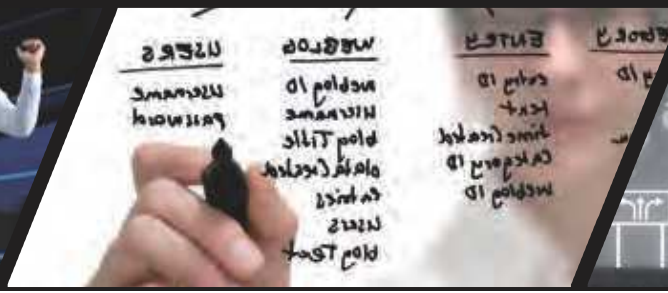 USERS
username
password
WEBLOG
weblog ID
username
blog Title
date Created
Entries
users
blog Text
ENTRY
entry ID
text
time Created
category ID
weblog ID
EGORY
ID